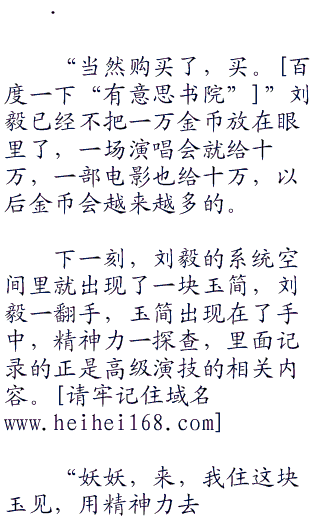 .
“当然购买了，买。[百
度一下“有意思书院”]”刘
毅已经不把一万金币放在眼
里了，一场演唱会就给十
万，一部电影也给十万，以
后金币会越来越多的。
下一刻，刘毅的系统空
间里就出现了一块玉简，刘
毅一翻手，玉简出现在了手
中，精神力一探查，里面记
录的正是高级演技的相关内
容。[请牢记住域名
www.heihei168.com]
“妖妖，来，我住这块
玉见，用精神力去